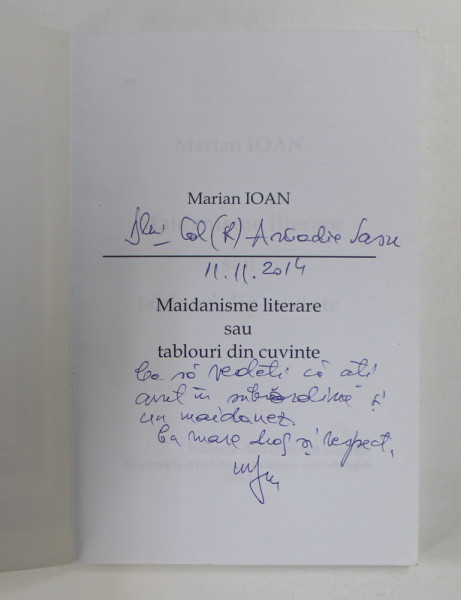 Marian IOAN
Dlui Col (R) Arcadie Sasu
11.11.2014
Maidanisme literare
sau
tablouri din cuvinte
Ca să vedeți că ați
avut în subordine și
un maidanez.
Cu mare drag și respect,